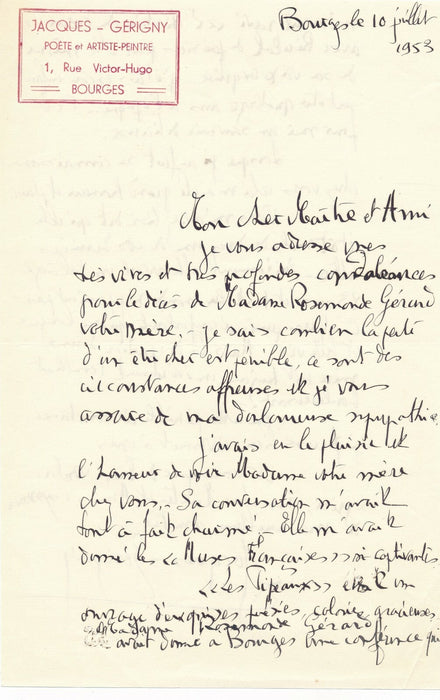 JACQUES - GÉRIGNY
POÈTE et ARTISTE-PEINTRE
1, Rue Victor-Hugo
BOURGES
Bourges le 10 juillet
1953
Mon cher Maître et Ami
je vous adresse mes
très vives et très profondes condoléances
pour le décès de Madame Rosemonde Gérard
votre mère. - je sais combien la perte
d'un être cher est pénible, ce sont des
circonstances affreuses et je vous
assure de ma douloureuse sympathie,
j'avais eu le plaisir et
l'honneur de voir Madame votre mère
chez vous. - Sa conversation m'avait
tout à fait charmé - Elle m'avait
donné les « Muses Françaises » si captivantes
« Les Pipeaux » était un
ouvrage d'exquises poésies, coloriées, gracieuses
Madame Rosemonde Gérard
avait donné à Bourges une conférence qui